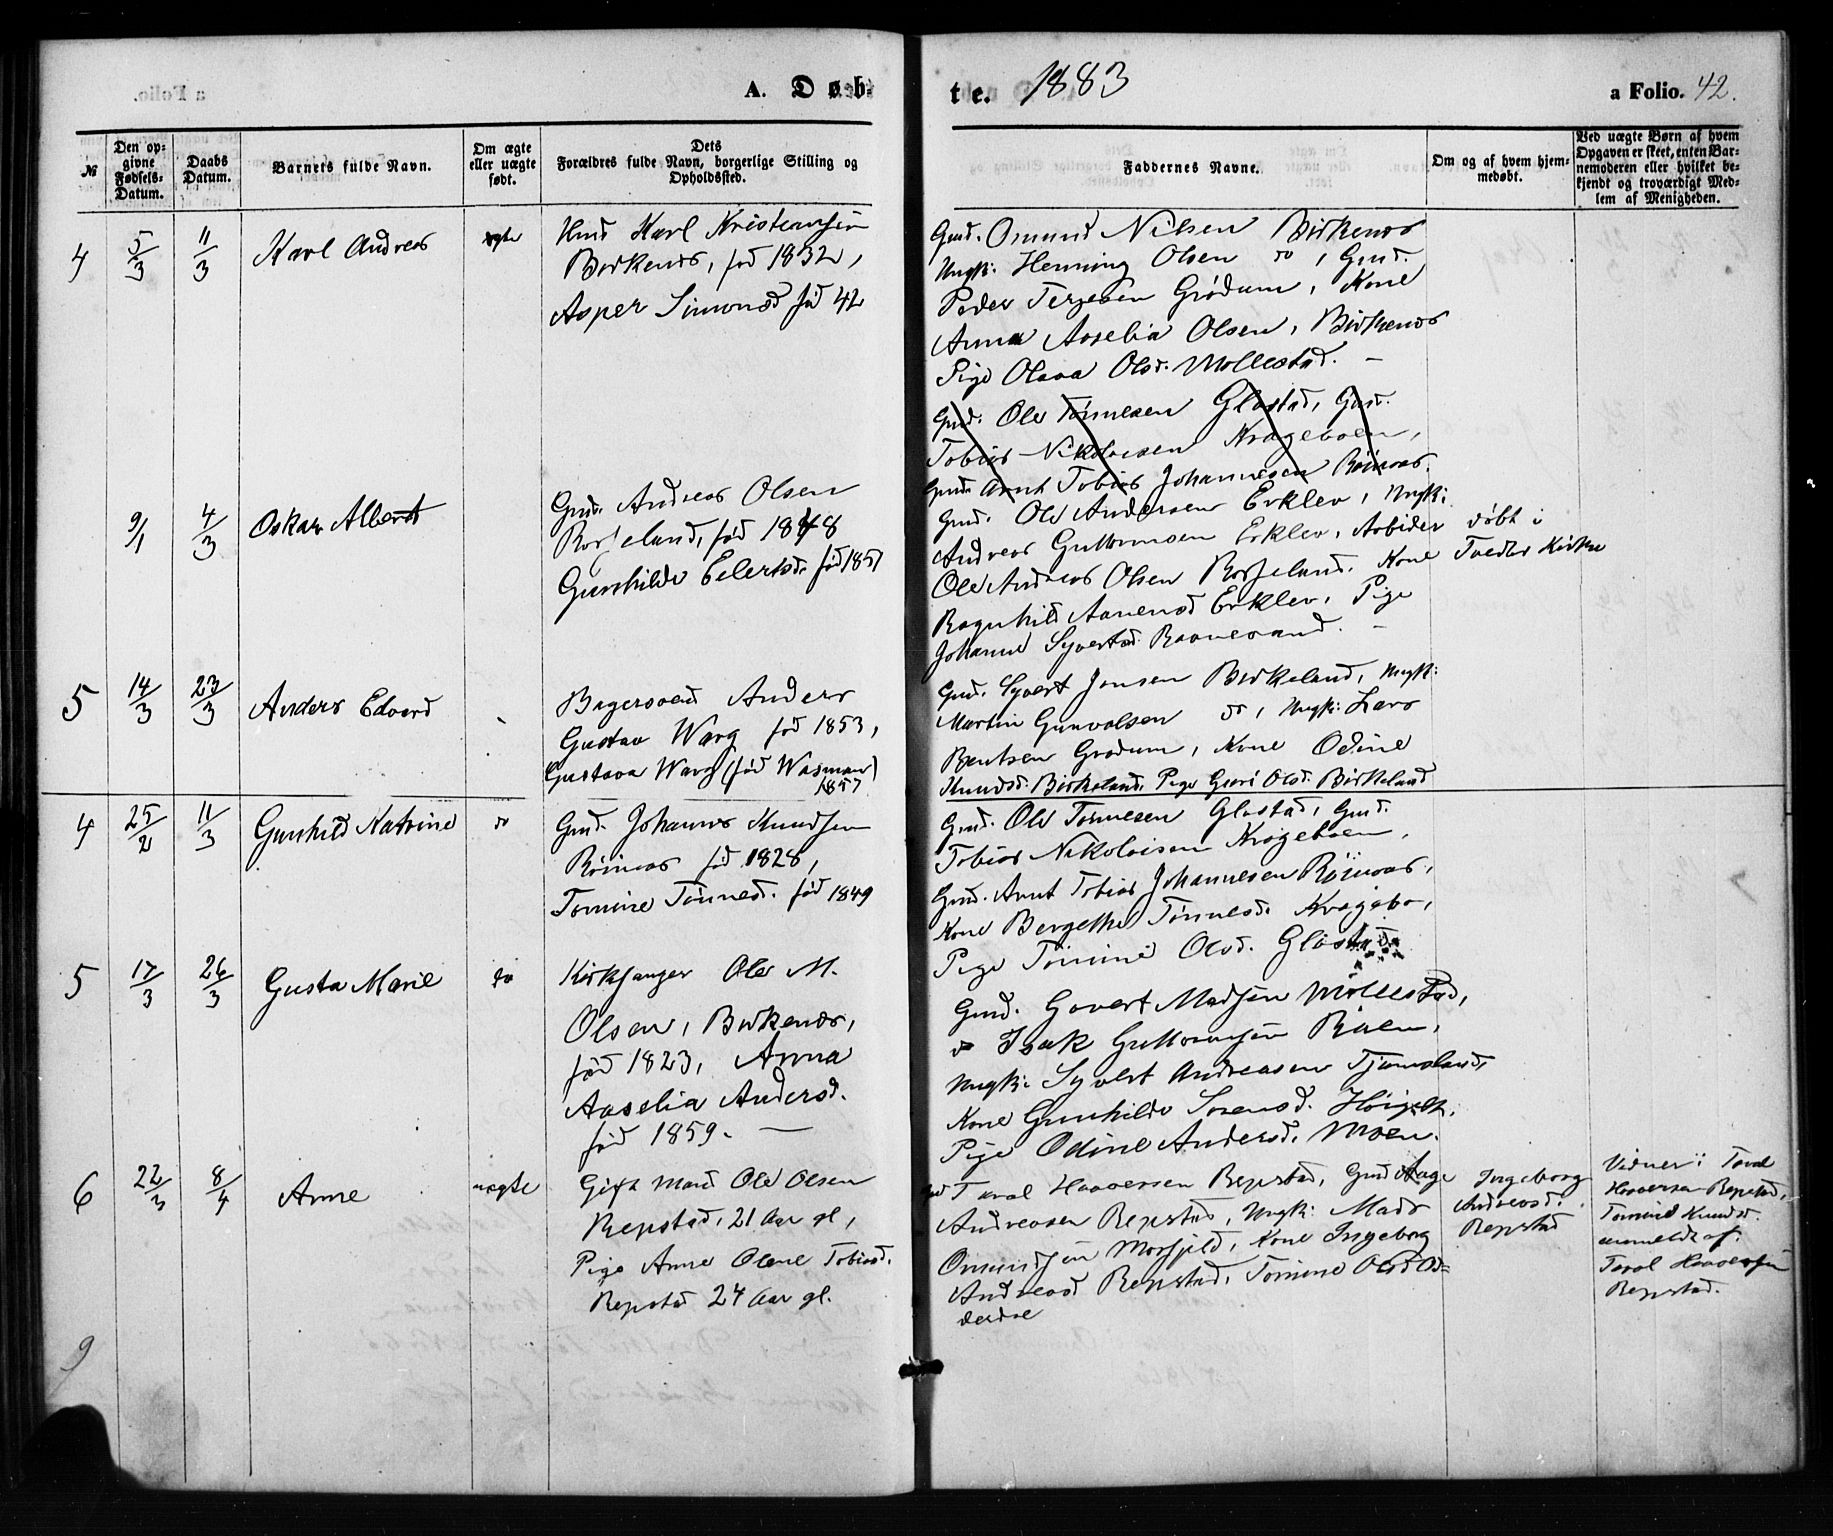 A. Døb-
te. 1883
a Folio. 42.
№
Den op-
givne
Fødsels-
Datum.
Daabs
Datum.
Barnets fulde Navn.
Om ægte
eller uægte
født.
Dets
Forældres fulde Navn, borgerlige Stilling og
Opholdssted.
Faddernes Navne.
Om og af hvem hjem-
medøbt.
Ved uægte Børn af hvem
Opgaven er skeet, enten Bar-
nemoderen eller hvilket be-
kjendt og troværdigt Med-
lem af Menigheden.
4 5/3 11/3 Karl Andreas ægte
Karl Kristiansen
Birkenes, fød 1832,
Asper Simonsd fød 42
Gmd. Omund Nilsen Birkenes
Ungk: Henning Olsen do, Gmd.
Peder Terjesen Grødum, Kone
Anna Aaselia Olsen, Birkenes
Pige Olava Olsd. Mollestad. –
Gmd. Ole Tønnesen Gløstad, Gmd.
Tobias Nikolaisen Krageboen,
Gmd. Arnt Tobias Johannesen Röinaas.
9/1 4/3 Oskar Albert
Gmd. Andreas Olsen
fød 1848
Gunhilde Eilertsd. fød 1851
Gmd. Ole Andersen Erklev, Ungk:
Andreas Guttormsen Erklev, Arbider
Ole Andreas Olsen Kone
Ragnhild Aanensd Erklev, Pige
Johanne Syvertsd. –
døbt i
Tvedts Kirke
5 14/3 23/3 Anders Edvard
Bagersvend Anders
Gustav Warg fød 1853,
Gustava Warg (fød Wasman)
1857
Gmd. Syvert Jensen Birkeland, Ungk:
Martin Gunvalsen do, Ungk: Lars
Bentsen Grødum, Kone Odine
Knudsd. Birkeland, Pige Guri Olsd. Birkeland
4 25/2 11/3 Gunhild Katrine do
Gmd. Johannes Knudsen
Röinaas fød 1828,
Tomine Tönnesd. fød 1849
Gmd. Ole Tønnesen Gløstad, Gmd.
Tobias Nikolaisen Krageboen,
Gmd. Arnt Tobias Johannesen Röinaas,
Kone Bergethe Tönnesd. Kragebo,
Pige Tomine Olsd. Gløstad.
5 17/3 26/3 Gusta Marie do
Kirksanger Ole M.
Olsen, Birkenes,
fød 1823, Anna
Aaselia Andersd.
fød 1859. —
Gmd. Govert Madsen Mollestad,
do Isak Guttormsen
Ungk: Syvert Andreasen
Kone Gunhilde Sorensd.
Pige Odine Andersd. Moen.
6 22/3 8/4 Anne uægte
Gift Mand Ole Olsen
Repstad, 21 Aar gl,
Pige Anne Olene Tobiasd.
Repstad 24 Aar gl.
Gmd Taral Haaversen Repstad, Gmd Aage
Andreasen Repstad, Ungk: Mads
Omundsen Kone Ingeborg
Andreasd Repstad, Tomine Olsd Od=
derdal
Ingeborg
Andreasd.
Repstad
Vidner: Taral
Haaversen Repstad,
Tomine Knudsd.
anmeldt af:
Taral Haaversen
Repstad.
9